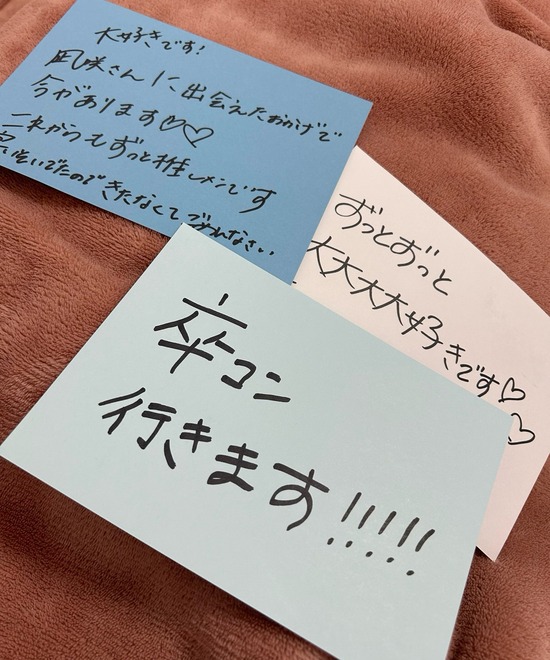 大好きです!
凪咲さんに出会えたおかげで
今があります♡♡
これからもずっと推しメンです
急いでたので きたなくてごめんなさい
ずっとずっと
大大大大好きです♡
♡
卒コン
行きます!!!!!